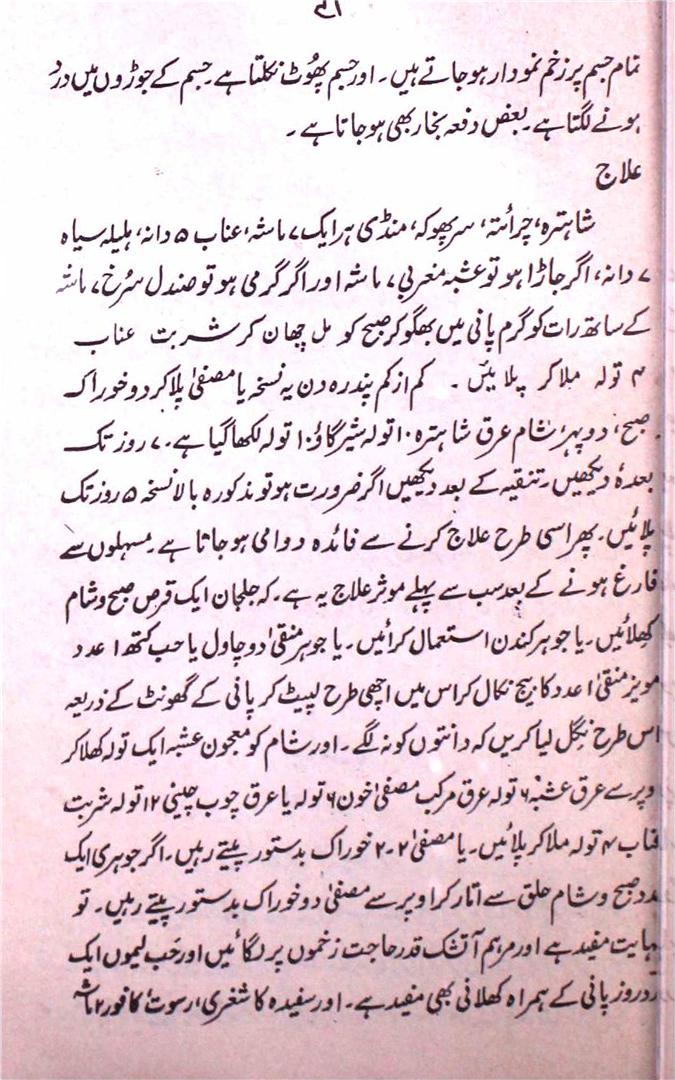 ۹۱
تمام جسم پر زخم نمودار ہو جاتے ہیں۔ اور جسم پھُوٹ نکلتا ہے۔ جسم کے جوڑوں میں درد
ہونے لگتا ہے۔ بعض دفعہ بخار بھی ہو جاتا ہے۔
علاج
شاہترہ، چرائتہ، سرپھوکہ، منڈی ہر ایک ۷ ماشہ، عناب ۵ دانہ، ہلیلہ سیاہ
۷ دانہ، اگر جاڑا ہو تو عشبہ مغربی ۷ ماشہ اور اگر گرمی ہو تو صندل سُرخ ۷ ماشہ
کے ساتھ رات کو گرم پانی میں بھگو کر صبح کو مل چھان کر شربت عناب
۴ تولہ ملا کر پلائیں۔ کم از کم پندرہ دن یہ نسخہ یا مصفیٰ پلا کر دو خوراک
صبح، دوپہر، شام عرق شاہترہ ۱۰ تولہ شیر گاؤ ۱۰ تولہ لکھا گیا ہے۔ ۷ روز تک
بعدہٗ دیکھیں۔ تنقیہ کے بعد دیکھیں اگر ضرورت ہو تو مذکورہ بالا نسخہ ۵ روز تک
پلائیں۔ پھر اسی طرح علاج کرنے سے فائدہ دوامی ہو جاتا ہے۔ مسہلوں سے
فارغ ہونے کے بعد سب سے پہلے موثر علاج یہ ہے۔ کہ جلجان ایک قرص صبح و شام
کھلائیں۔ یا جوہر کندن استعمال کرائیں۔ یا جوہر منقیٰ دو چاول یا حب کتھ ۱ عدد
مویز منقیٰ ۱ عدد کا بیج نکال کر اس میں اچھی طرح لپیٹ کر پانی کے گھونٹ کے ذریعہ
اس طرح نگل لیا کریں کہ دانتوں کو نہ لگے۔ اور شام کو معجون عشبہ ایک تولہ کھلا کر
وپر سے عرق عشبہ ۶ تولہ عرق مرکب مصفیٰ خون ۶ تولہ یا عرق چوب چینی ۱۲ تولہ شربت
عناب ۴ تولہ ملا کر پلائیں۔ یا مصفیٰ ۲-۲ خوراک بدستور پیتے رہیں۔ اگر جوہری ایک
عدد صبح و شام حلق سے اتار کر اوپر سے مصفیٰ دو خوراک بدستور پیتے رہیں۔ تو
نہایت مفید ہے اور مرہم آتشک قدر حاجت زخموں پر لگائیں اور حَب لیموں ایک
روزد پانی کے ہمراہ کھلانی بھی مفید ہے۔ اور سفیدہ کاشغری، رسوت، کافور ۲ ماشہ